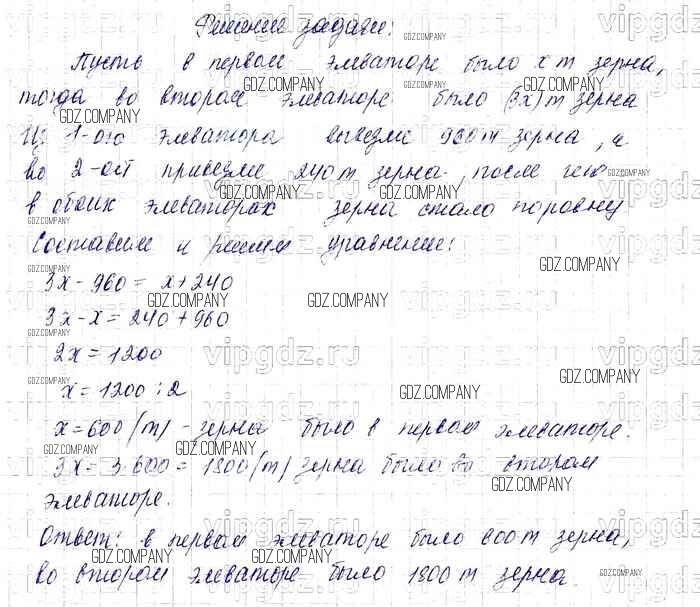 Решение задачи:
Пусть в первом элеваторе было x т зерна,
тогда во втором элеваторе было (3x) т зерна
Из 1-ого элеватора вывезли 960 т зерна, а
во 2-ой привезли 240 т зерна, после чего
в обоих элеваторах зерна стало поровну
Составим и решим уравнение:
3x - 960 = x + 240
3x - x = 240 + 960
2x = 1200
x = 1200 : 2
x = 600 (т) - зерна было в первом элеваторе.
3x = 3·600 = 1800 (т) зерна было во втором
элеваторе.
Ответ: в первом элеваторе было 600 т зерна,
во втором элеваторе было 1800 т зерна.